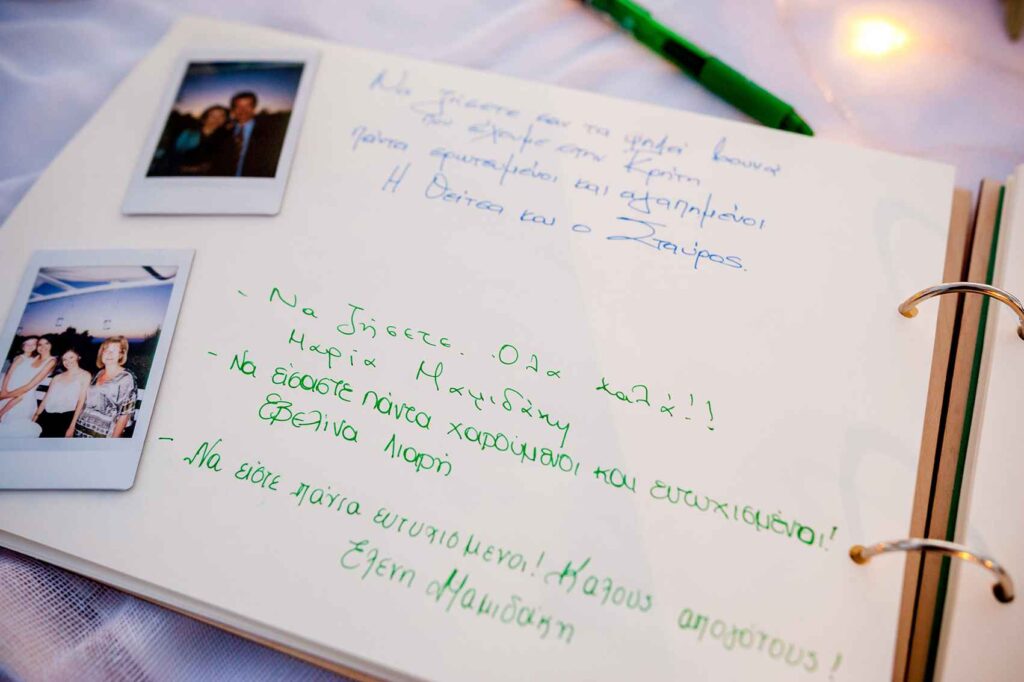 Να ζήσετε σαν τα ψηλά βουνά
που έχουμε στην Κρήτη
πάντα ερωτευμένοι και αγαπημένοι
Η Θείτσα και ο Σταύρος.
- Να ζήσετε. Όλα καλά!!
Μαρία Μαμιδάκη
- Να είσαστε πάντα χαρούμενοι και ευτυχισμένοι!
Εβελίνα Λιαρή
- Να είστε πάντα ευτυχισμενοι! Καλους απογότους!
Ελενη Μαμιδάκη